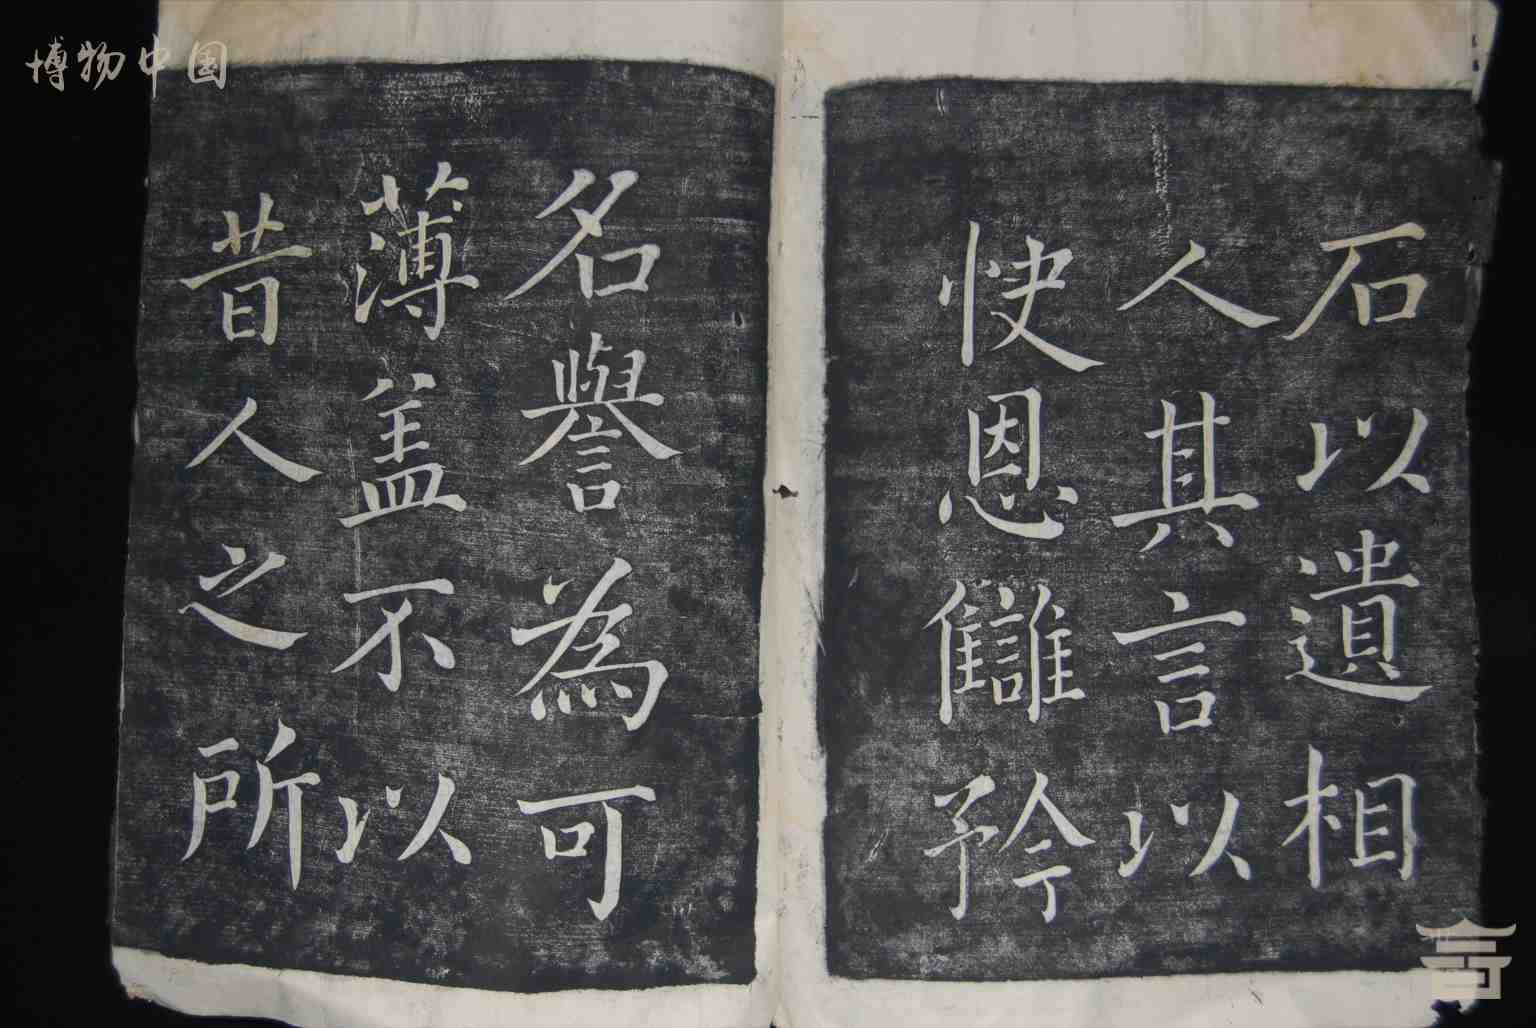 博物中国
石以遺相
人其言以
快恩讎矜
名譽為可
薄盖不以
昔人之所